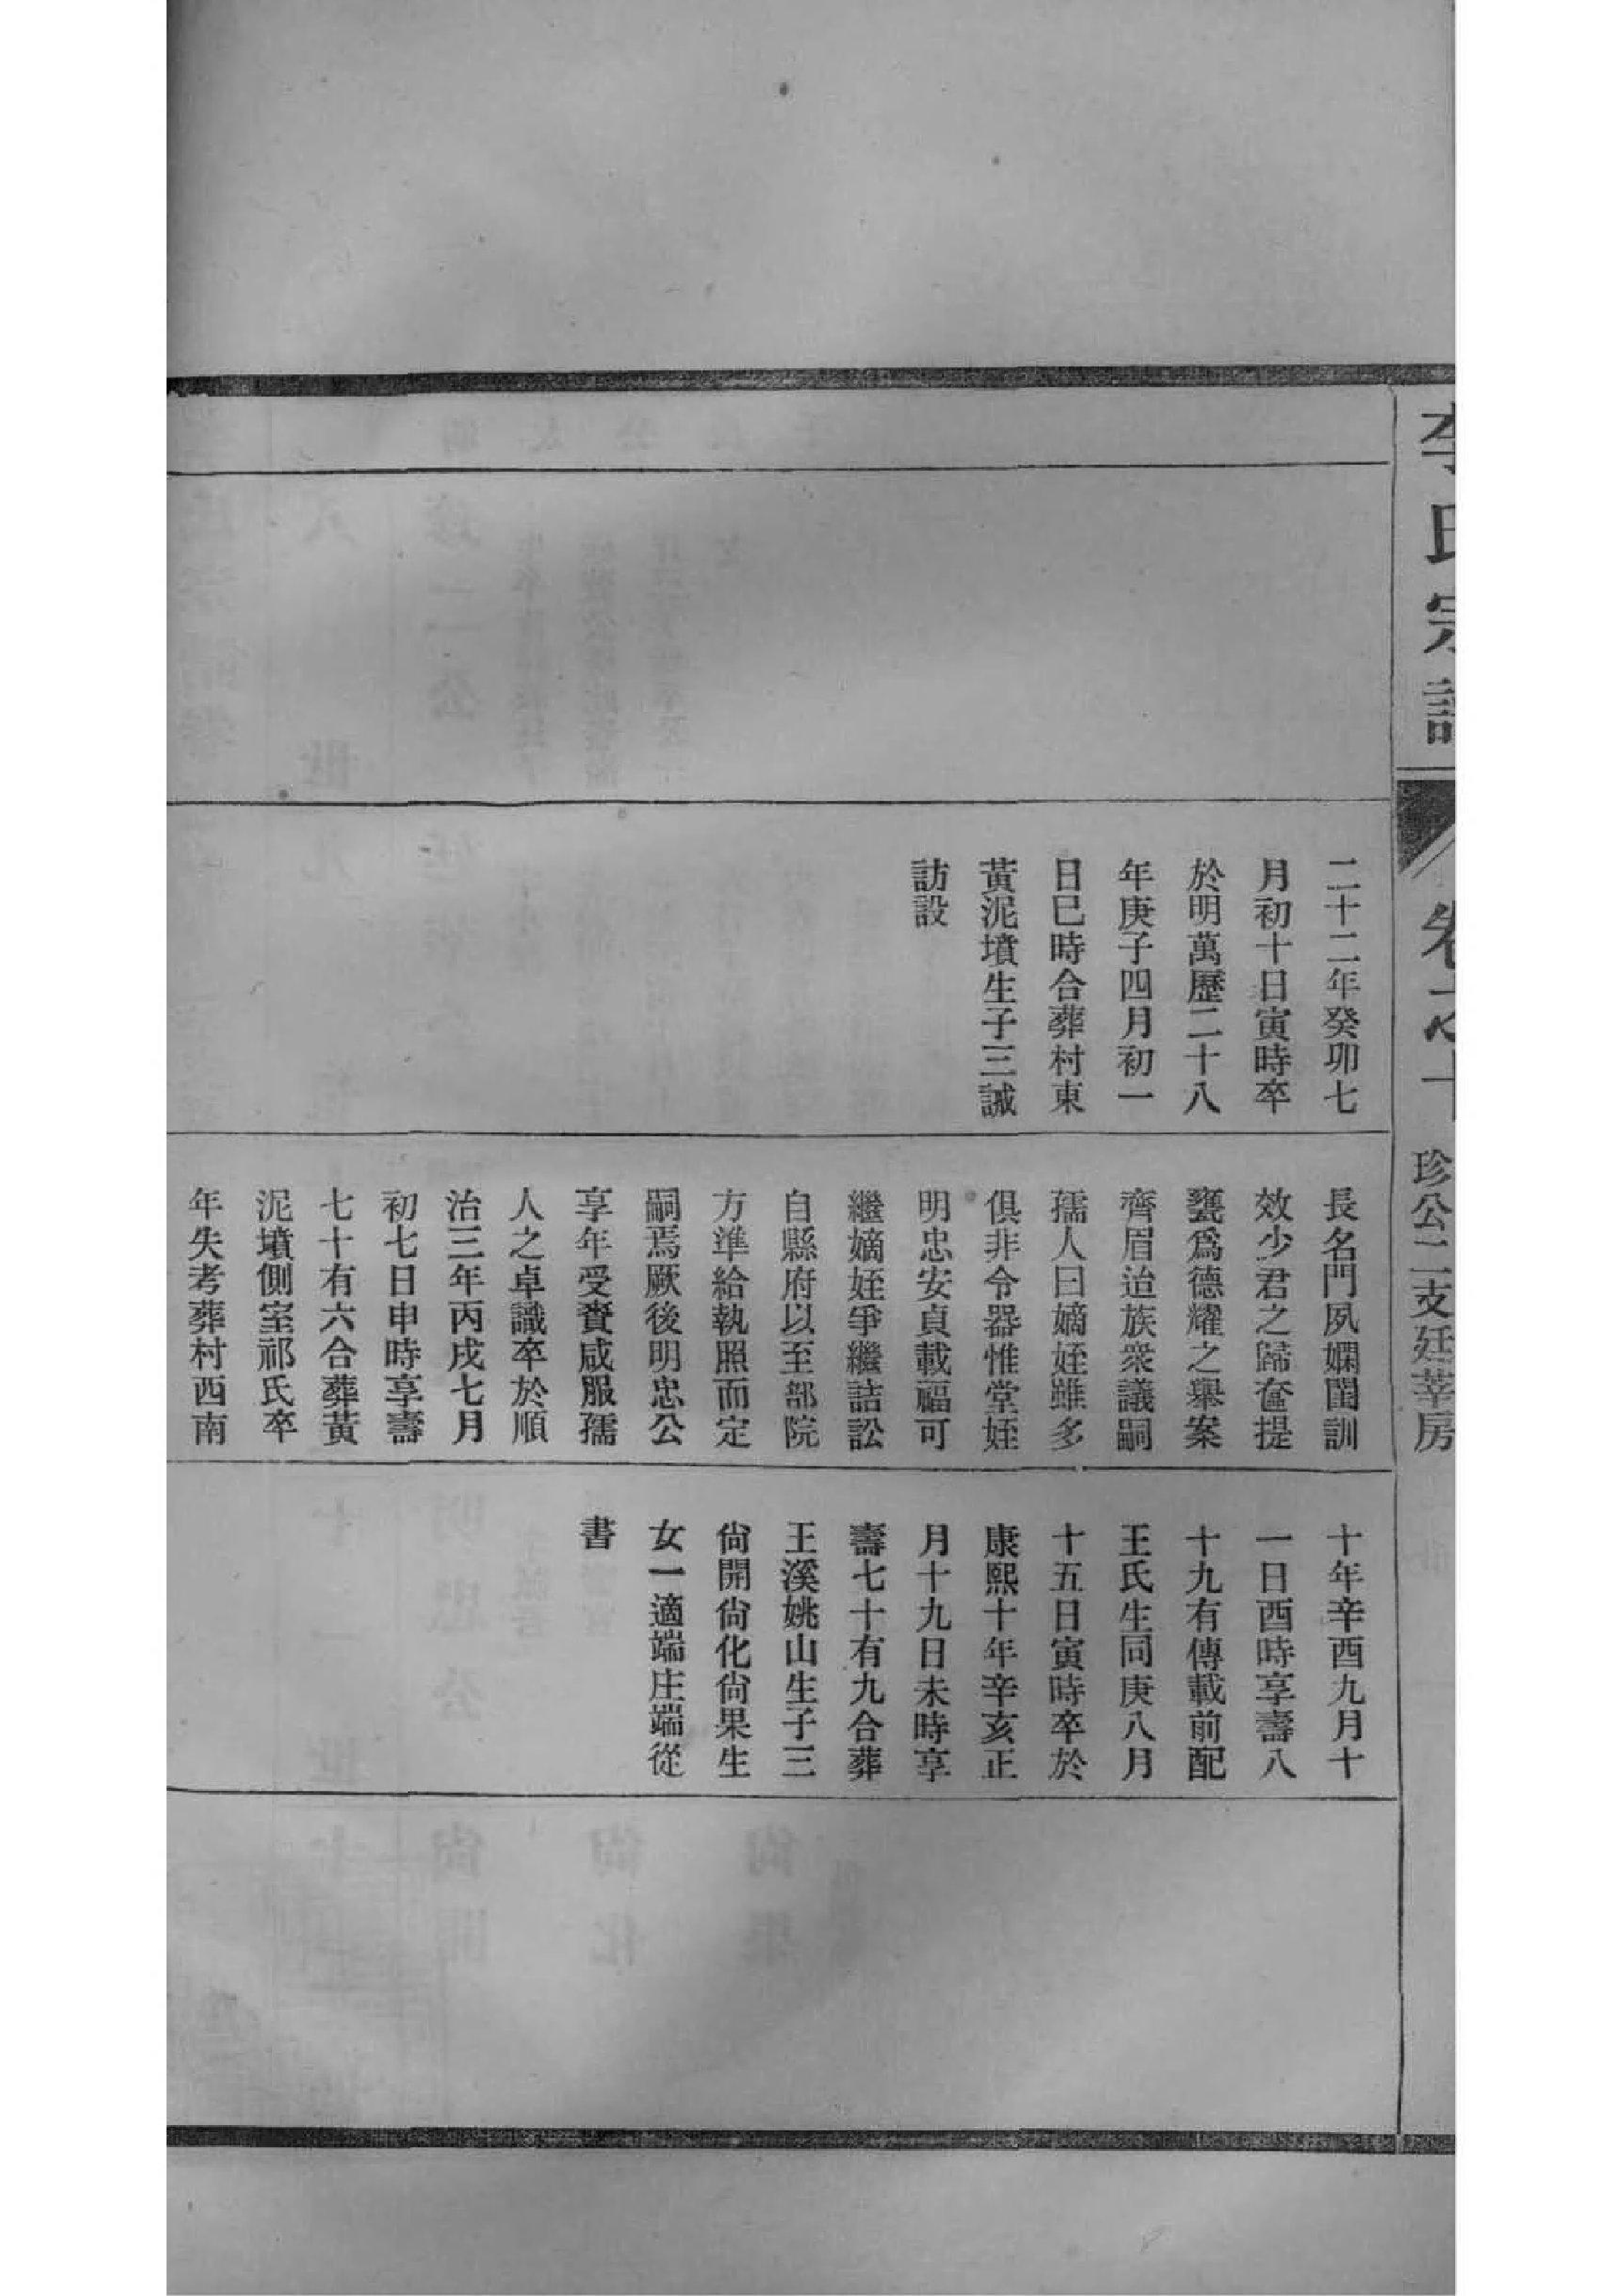 李氏宗譜
卷之十
珍公二支廷莘房
二十二年癸卯七
月初十日寅時卒
於明萬歷二十八
年庚子四月初一
日巳時合葬村東
黃泥墳生子三誠
訪設
長名門夙嫻閨訓
效少君之歸奩提
甕爲德耀之舉案
齊眉迨族衆議嗣
孺人曰嫡姪雖多
俱非令器惟堂姪
明忠安貞載福可
繼嫡姪爭繼詰訟
自縣府以至部院
方準給執照而定
嗣焉厥後明忠公
享年受賚咸服孺
人之卓識卒於順
治三年丙戌七月
初七日申時享壽
七十有六合葬黃
泥墳側室祁氏卒
年失考葬村西南
十年辛酉九月十
一日酉時享壽八
十九有傳載前配
王氏生同庚八月
十五日寅時卒於
康熙十年辛亥正
月十九日未時享
壽七十有九合葬
王溪姚山生子三
尙開尙化尙果生
女一適端庄端從
書